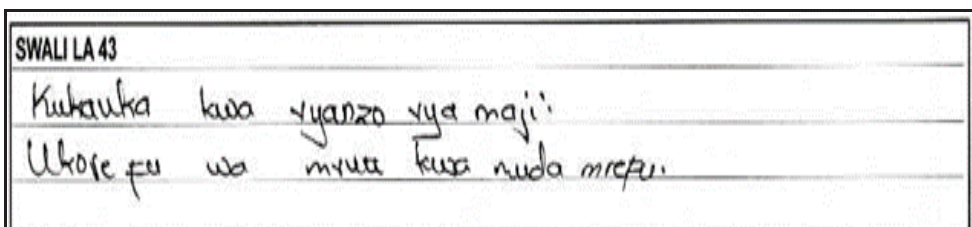 SWALI LA 43
Kukauka kwa vyanzo vya maji.
Ukosefu wa mvua kwa muda mrefu.